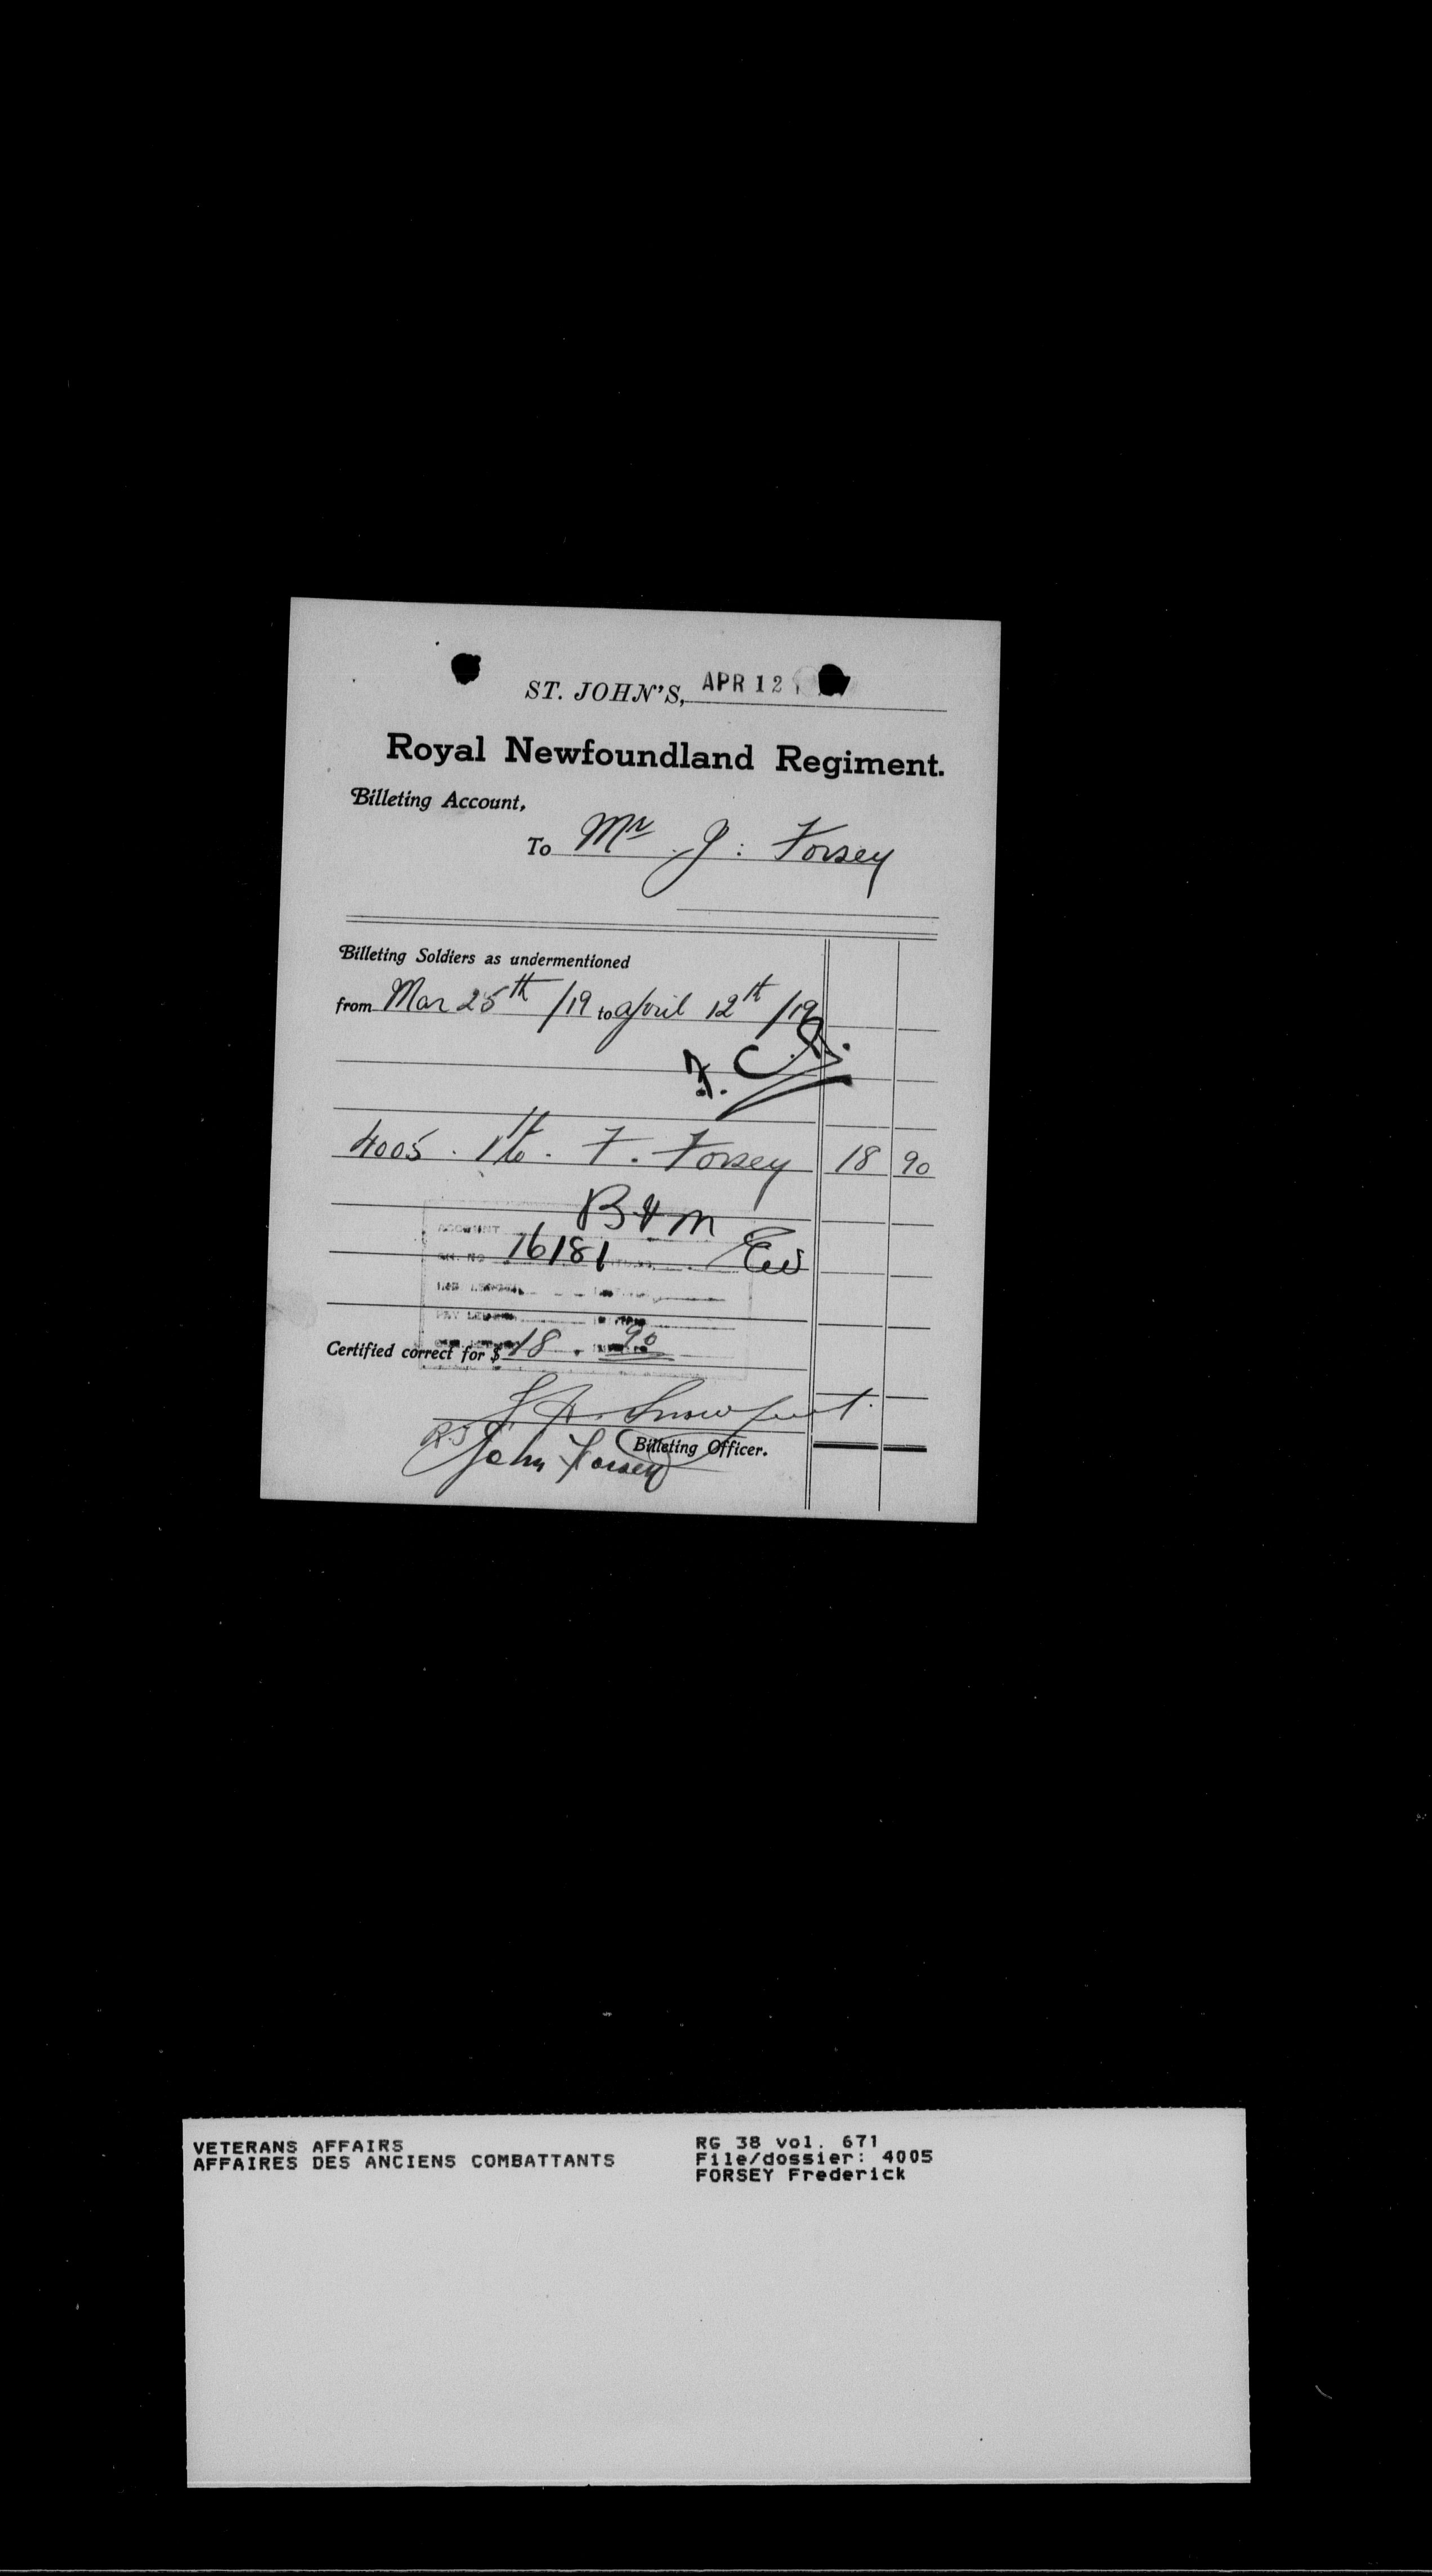 ST. JOHN'S, APR 12
Royal Newfoundland Regiment.
Billeting Account,
To Mr J: Forsey
Billeting Soldiers as undermentioned
from Mar 25th /19 to April 12th /19
4005. Pte. F. Forsey 18 90
B & M
ACCOUNT
CH. NO 16181
PAY LEDGER
Certified correct for $ 18.90
Billeting Officer.
John Forsey
VETERANS AFFAIRS
AFFAIRES DES ANCIENS COMBATTANTS
RG 38 vol. 671
File/dossier: 4005
FORSEY Frederick